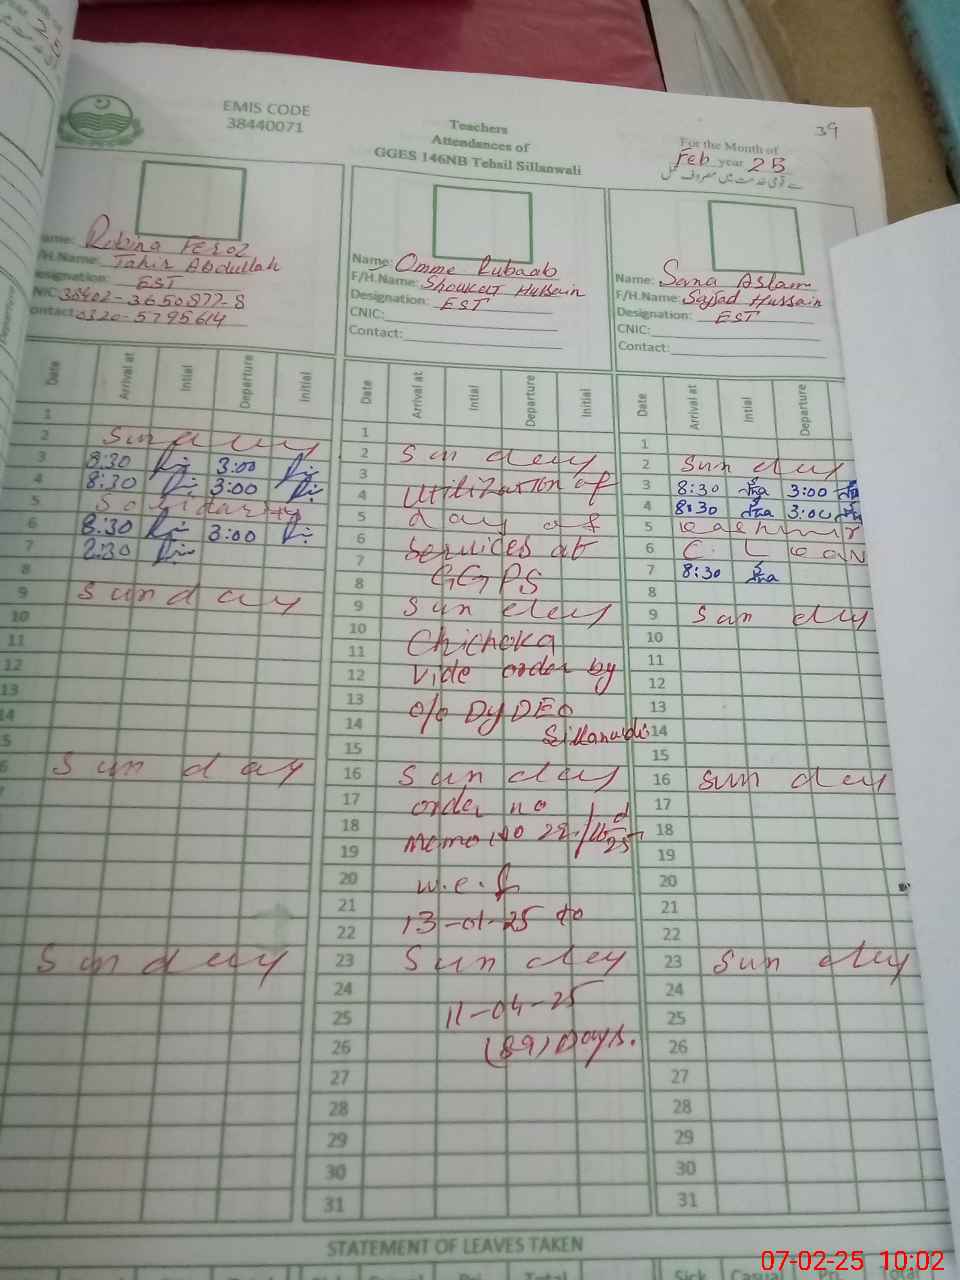 39
EMIS CODE
38440071
Teachers
Attendances of
GGES 146NB Tehsil Sillanwali
For the Month of
Feb year 25
Name: Robina Feroz
F/H.Name: Tahir Abdullah
Designation: EST
CNIC: 38402-3650877-8
Contact: 0320-5795614
Name: Omme Rubaab
F/H.Name: Shoukat Hussain
Designation: EST
CNIC:
Contact:
Name: Sana Aslam
F/H.Name: Sajjad Hussain
Designation: EST
CNIC:
Contact:
Date Arrival at Intial Departure Initial
1
2 Sunday
3 8:30 3:00
4 8:30 3:00
5 Solidarity
6 8:30 3:00
7 8:30
8
9 Sunday
10
11
12
13
14
15
16 Sunday
Sunday
Date Arrival at Intial Departure Initial
1
2 Sunday
3
4 Utilization of
5 day of
6
7 Services at
8 GGPS
9 Sunday
10
11 Chichoka
12 Vide order by
13
14 o/o DyDEO
Sillanwali
15
16 Sunday
17 order no
18
19 memo no
20 w.e.f
21
22 13-01-25 to
23 Sunday
24
25 11-04-25
26 (89) Days.
27
28
29
30
31
Date Arrival at Intial Departure
1
2 Sunday
3 8:30 3:00
4 8:30 3:00
5 Kashmir
6 C. Leav
7 8:30
8
9 Sunday
10
11
12
13
14
15
16 Sunday
17
18
19
20
21
22
23 Sunday
24
25
26
27
28
29
30
31
STATEMENT OF LEAVES TAKEN
Sick Casual
07-02-25 10:02